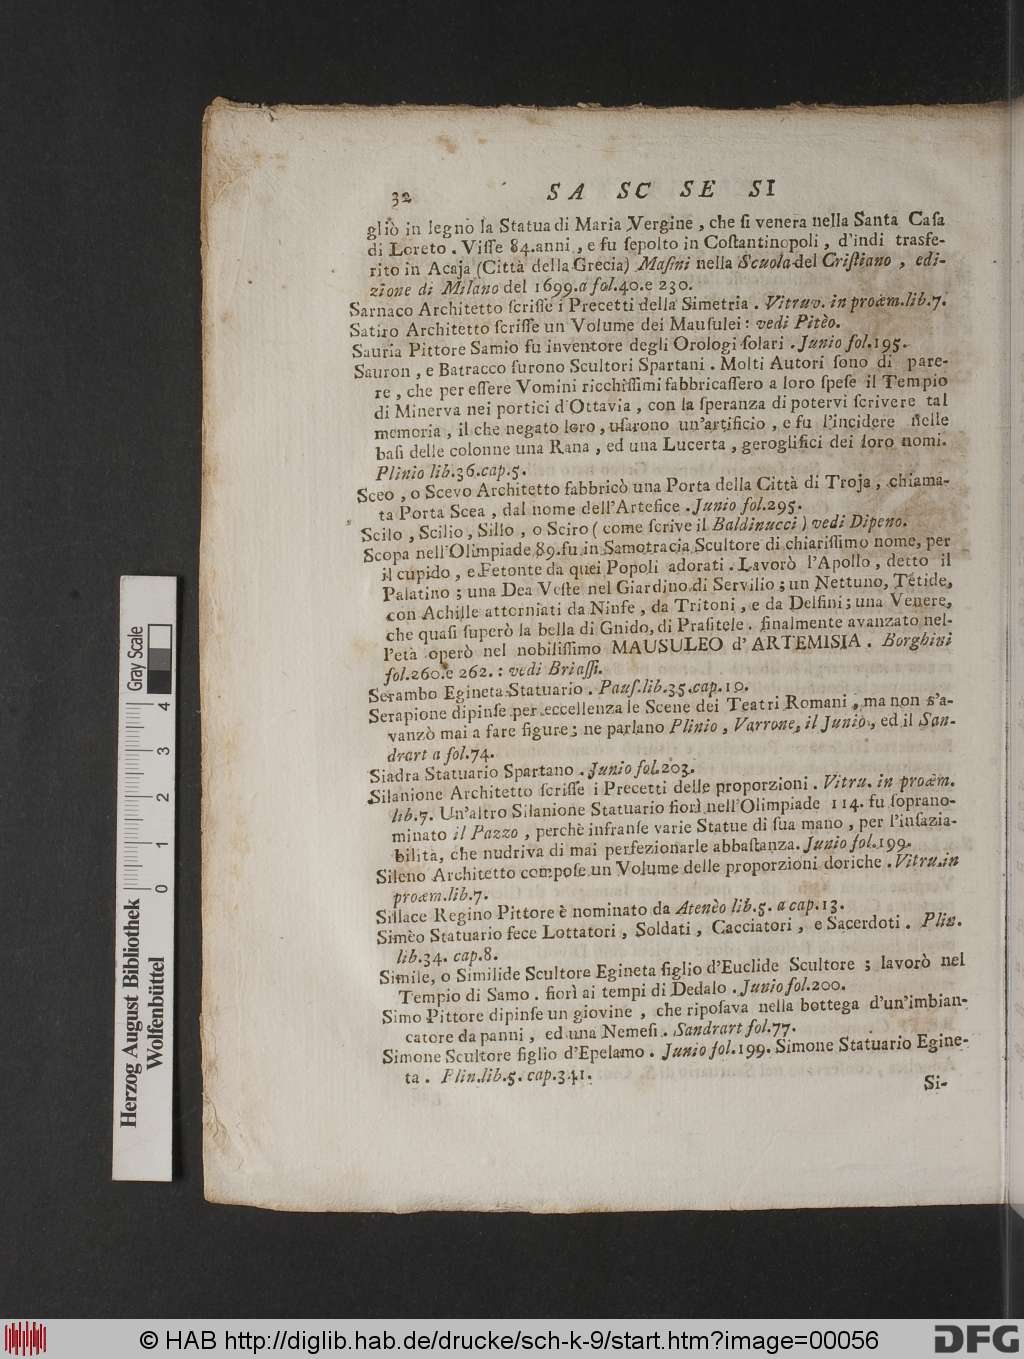 32 SA SC SE SI
gliò in legno la Statua di Maria Vergine , che ſi venera nella Santa Caſa
di Loreto . Viſſe 84. anni , e fu ſepolto in Coſtantinopoli , d'indi trasfe-
rito in Acaja (Città della Grecia) Maſini nella Scuola del Criſtiano , edi-
zione di Milano del 1699. a fol. 40. e 230.
Sarnaco Architetto ſcriſſe i Precetti della Simetria . Vitruv. in proæm. lib. 7.
Satiro Architetto ſcriſſe un Volume dei Mauſulei : vedi Pitèo.
Sauria Pittore Samio fu inventore degli Orologi ſolari . Junio fol. 195.
Sauron , e Batracco furono Scultori Spartani . Molti Autori ſono di pare-
re , che per eſſere Vomini ricchiſſimi fabbricaſſero a loro ſpeſe il Tempio
di Minerva nei portici d'Ottavia , con la ſperanza di potervi ſcrivere tal
memoria , il che negato loro , uſarono un'artificio , e fu l'incidere nelle
baſi delle colonne una Rana , ed una Lucerta , geroglifici dei loro nomi.
Plinio lib. 36. cap. 5.
Sceo , o Scevo Architetto fabbricò una Porta della Città di Troja , chiama-
ta Porta Scea , dal nome dell'Artefice . Junio fol. 295.
Scilo , Scilio , Sillo , o Sciro ( come ſcrive il Baldinucci ) vedi Dipeno.
Scopa nell'Olimpiade 89. fu in Samotracia Scultore di chiariſſimo nome, per
il cupido , e Fetonte da quei Popoli adorati . Lavorò l'Apollo , detto il
Palatino ; una Dea Veſte nel Giardino di Servilio ; un Nettuno, Tétide,
con Achille attorniati da Ninfe , da Tritoni , e da Delfini ; una Venere,
che quaſi ſuperò la bella di Gnido, di Praſitele . finalmente avanzato nel-
l'età operò nel nobiliſſimo MAUSULEO d' ARTEMISIA . Borghini
fol. 260. e 262. : vedi Briaſſi.
Serambo Egineta Statuario . Pauſ. lib. 35. cap. 10.
Serapione dipinſe per eccellenza le Scene dei Teatri Romani , ma non s'a-
vanzò mai a fare figure ; ne parlano Plinio , Varrone, il Junio , ed il San-
drart a fol. 74.
Siadra Statuario Spartano . Junio fol. 203.
Silanione Architetto ſcriſſe i Precetti delle proporzioni . Vitru. in proæm.
lib. 7. Un'altro Silanione Statuario fiorì nell'Olimpiade 114. fu ſoprano-
minato il Pazzo , perchè infranſe varie Statue di ſua mano , per l'inſazia-
bilità, che nudriva di mai perfezionarle abbaſtanza. Junio fol. 199.
Sileno Architetto compoſe un Volume delle proporzioni doriche . Vitru. in
proæm. lib. 7.
Sillace Regino Pittore è nominato da Atenèo lib. 5. a cap. 13.
Simèo Statuario fece Lottatori , Soldati , Cacciatori , e Sacerdoti . Plin.
lib. 34. cap. 8.
Simile, o Similide Scultore Egineta figlio d'Euclide Scultore ; lavorò nel
Tempio di Samo . fiorì ai tempi di Dedalo . Junio fol. 200.
Simo Pittore dipinſe un giovine , che ripoſava nella bottega d'un'imbian-
catore da panni , ed una Nemeſi . Sandrart fol. 77.
Simone Scultore figlio d'Epelamo . Junio fol. 199. Simone Statuario Egine-
ta . Plin. lib. 5. cap. 341.
Si-
Herzog August Bibliothek
Wolfenbüttel
0 1 2 3 4
Gray Scale
© HAB http://diglib.hab.de/drucke/sch-k-9/start.htm?image=00056
DFG